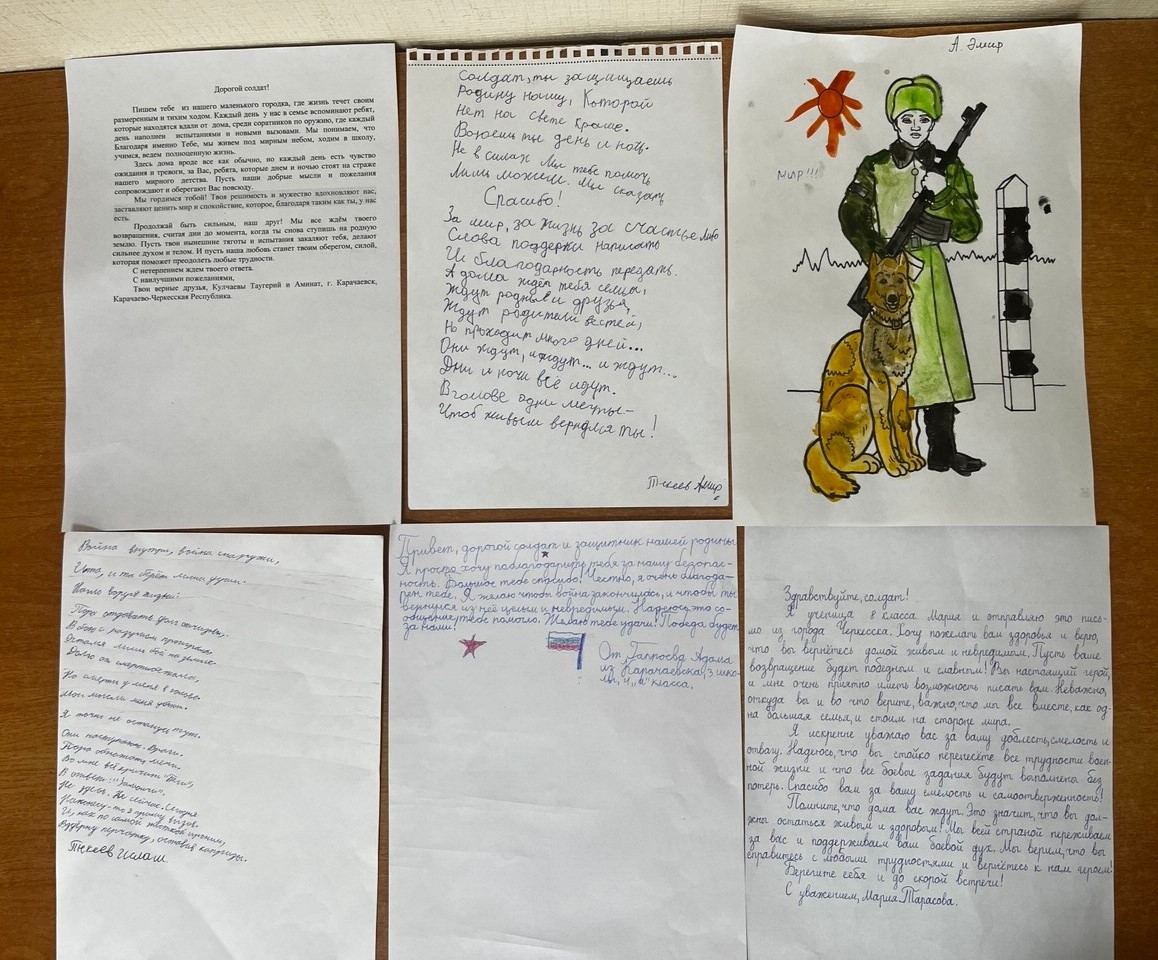 Дорогой солдат!
Пишем тебе из нашего маленького городка, где жизнь течет своим
размеренным и тихим ходом. Каждый день у нас в семье вспоминают ребят,
которые находятся вдали от дома, среди соратников по оружию, где каждый
день наполнен испытаниями и новыми вызовами. Мы понимаем, что
благодаря именно Тебе, мы живем под мирным небом, ходим в школу,
учимся, ведем полноценную жизнь.
Здесь дома вроде все как обычно, но каждый день есть чувство
ожидания и тревоги, за Вас, ребята, которые днем и ночью стоят на страже
нашего мирного детства. Пусть наши добрые мысли и пожелания
сопровождают и оберегают Вас повсюду.
Мы гордимся тобой! Твоя решимость и мужество вдохновляют нас,
заставляют ценить мир и спокойствие, которое, благодаря таким как ты, у нас
есть.
Продолжай быть сильным, наш друг! Мы все ждём твоего
возвращения, считая дни до момента, когда ты снова ступишь на родную
землю. Пусть твои нынешние тяготы и испытания закаляют тебя, делают
сильнее духом и телом. И пусть наша любовь станет твоим оберегом, силой,
которая поможет преодолеть любые трудности.
С нетерпением ждем твоего ответа.
С наилучшими пожеланиями,
Твои верные друзья, Кулчаевы Таугерий и Аминат, г. Карачаевск,
Карачаево-Черкесская Республика.
Солдат, ты защищаешь
Родину нашу, Которой
Нет на свете краше.
Воюешь ты день и ночь.
Не в силах Мы тебе помочь
Лишь можем. Мы сказать
Спасибо!
За мир, за жизнь за счастье либо
Слова поддержи написать
Ии благодарность передать.
А дома ждёт тебя семья,
Ждут родные и друзья,
Ждут родители вестей,
Но проходит много дней...
Они ждут, и ждут... и ждут...
Дни и ночи всё идут.
В голове одни мечты-
Чтоб живым вернулся ты!
Тикеев Амир
А. Эмир
МИР!!!
Война внутри, война снаружи,
Пора отдавать долг отчизны,
В бой с раздумьем
Остался лишь бой на
Долго он
Но смерть у меня в
Мои мысли меня убьют.
Я точно не останусь тут.
Они наступают. Враги.
Пора обнажать мечи.
Во мне всё кричит "Беги",
В ответ:!!! "Замолчи".
Не здесь. Не сейчас. Сегодня
Наконец-то я брошу вызов.
И, как по самой жаткой
Выдерну перчатку, оставив капризы.
Тикеев Ислам
Привет, дорогой солдат и защитник нашей родины
Я просто хочу поблагодарить тебя за нашу безопас-
ность. Большое тебе спасибо! Честно, я очень благода-
рен тебе. Я желаю чтобы война закончилась, и чтобы ты
вернулся из неё целым и невредимым. Надеюсь, это со-
общение тебе помогло. Желаю тебе удачи! Победа будет
за нами!
От Гаппоева Адама
из Карачаевска, 3 шко-
лы, 4 „а" класса,
Здравствуйте, солдат!
Я ученица 8 класса Мария и отправляю это пись-
мо из города Черкесска. Хочу пожелать вам здоровья и верю,
что вы вернётесь домой живым и невредимым. Пусть ваше
возвращение будет победным и славным! Вы настоящий герой,
и мне очень приятно иметь возможность писать вам. Неважно,
откуда вы и во что верите, важно, что мы все вместе, как од-
на большая семья, и стоим на стороне мира.
Я искренне уважаю вас за вашу доблесть, смелость и
отвагу. Надеюсь, что вы стойко перенесёте все трудности воен-
ной жизни и что все боевые задания будут выполнены без
потерь. Спасибо вам за вашу смелость и самоотверженность!
Помните, что дома вас ждут. Это значит, что вы дол-
жны остаться живым и здоровым! Мы всей страной переживаем
за вас и поддерживаем ваш боевой дух. Мы верим, что вы
справитесь с любыми трудностями и вернётесь к нам героем!
Берегите себя и до скорой встречи!
С уважением, Мария Тарасова.